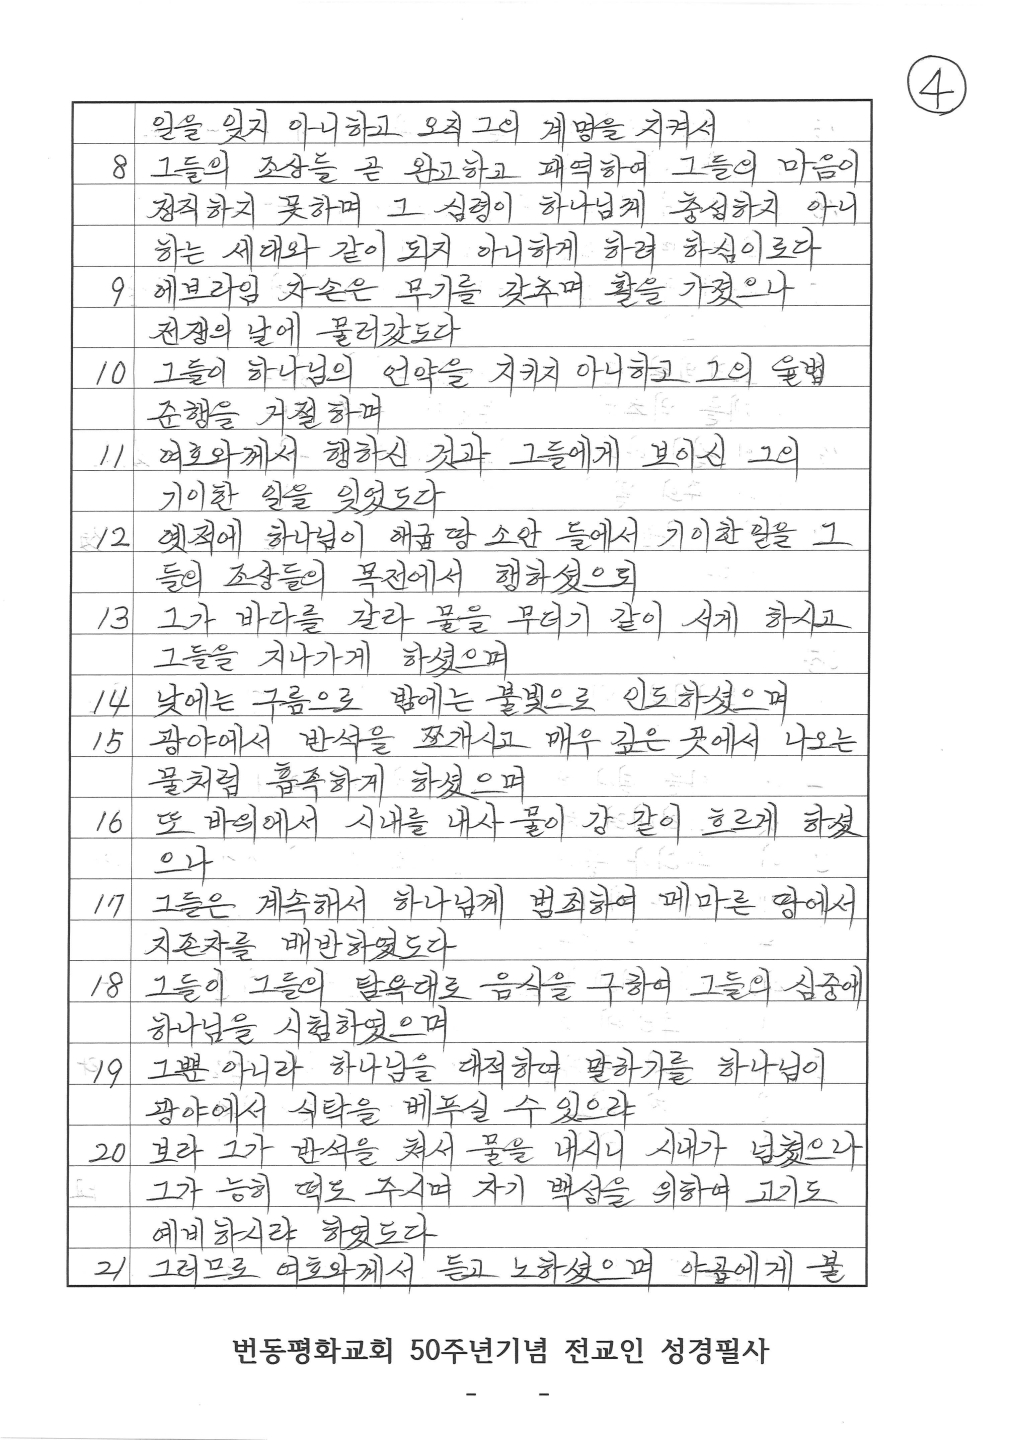 ④
일을 잊지 아니하고 오직 그의 계명을 지켜서
8 그들의 조상들 곧 완고하고 패역하여 그들의 마음이
정직하지 못하며 그 심령이 하나님께 충성하지 아니
하는 세대와 같이 되지 아니하게 하려 하심이로다
9 에브라임 자손은 무기를 갖추며 활을 가졌으나
전쟁의 날에 물러갔도다
10 그들이 하나님의 언약을 지키지 아니하고 그의 율법
준행을 거절하며
11 여호와께서 행하신 것과 그들에게 보이신 그의
기이한 일을 잊었도다
12 옛적에 하나님이 애굽 땅 소안 들에서 기이한 일을 그
들의 조상들의 목전에서 행하셨으되
13 그가 바다를 갈라 물을 무더기 같이 서게 하시고
그들을 지나가게 하셨으며
14 낮에는 구름으로 밤에는 불빛으로 인도하셨으며
15 광야에서 반석을 쪼개시고 매우 깊은 곳에서 나오는
물처럼 흡족하게 하셨으며
16 또 바위에서 시내를 내사 물이 강 같이 흐르게 하셨
으나
17 그들은 계속해서 하나님께 범죄하여 메마른 땅에서
지존자를 배반하였도다
18 그들이 그들의 탐욕대로 음식을 구하여 그들의 심중에
하나님을 시험하였으며
19 그뿐 아니라 하나님을 대적하여 말하기를 하나님이
광야에서 식탁을 베푸실 수 있으랴
20 보라 그가 반석을 쳐서 물을 내시니 시내가 넘쳤으나
그가 능히 떡도 주시며 자기 백성을 위하여 고기도
예비하시랴 하였도다
21 그러므로 여호와께서 듣고 노하셨으며 야곱에게 불
번동평화교회 50주년기념 전교인 성경필사
- -